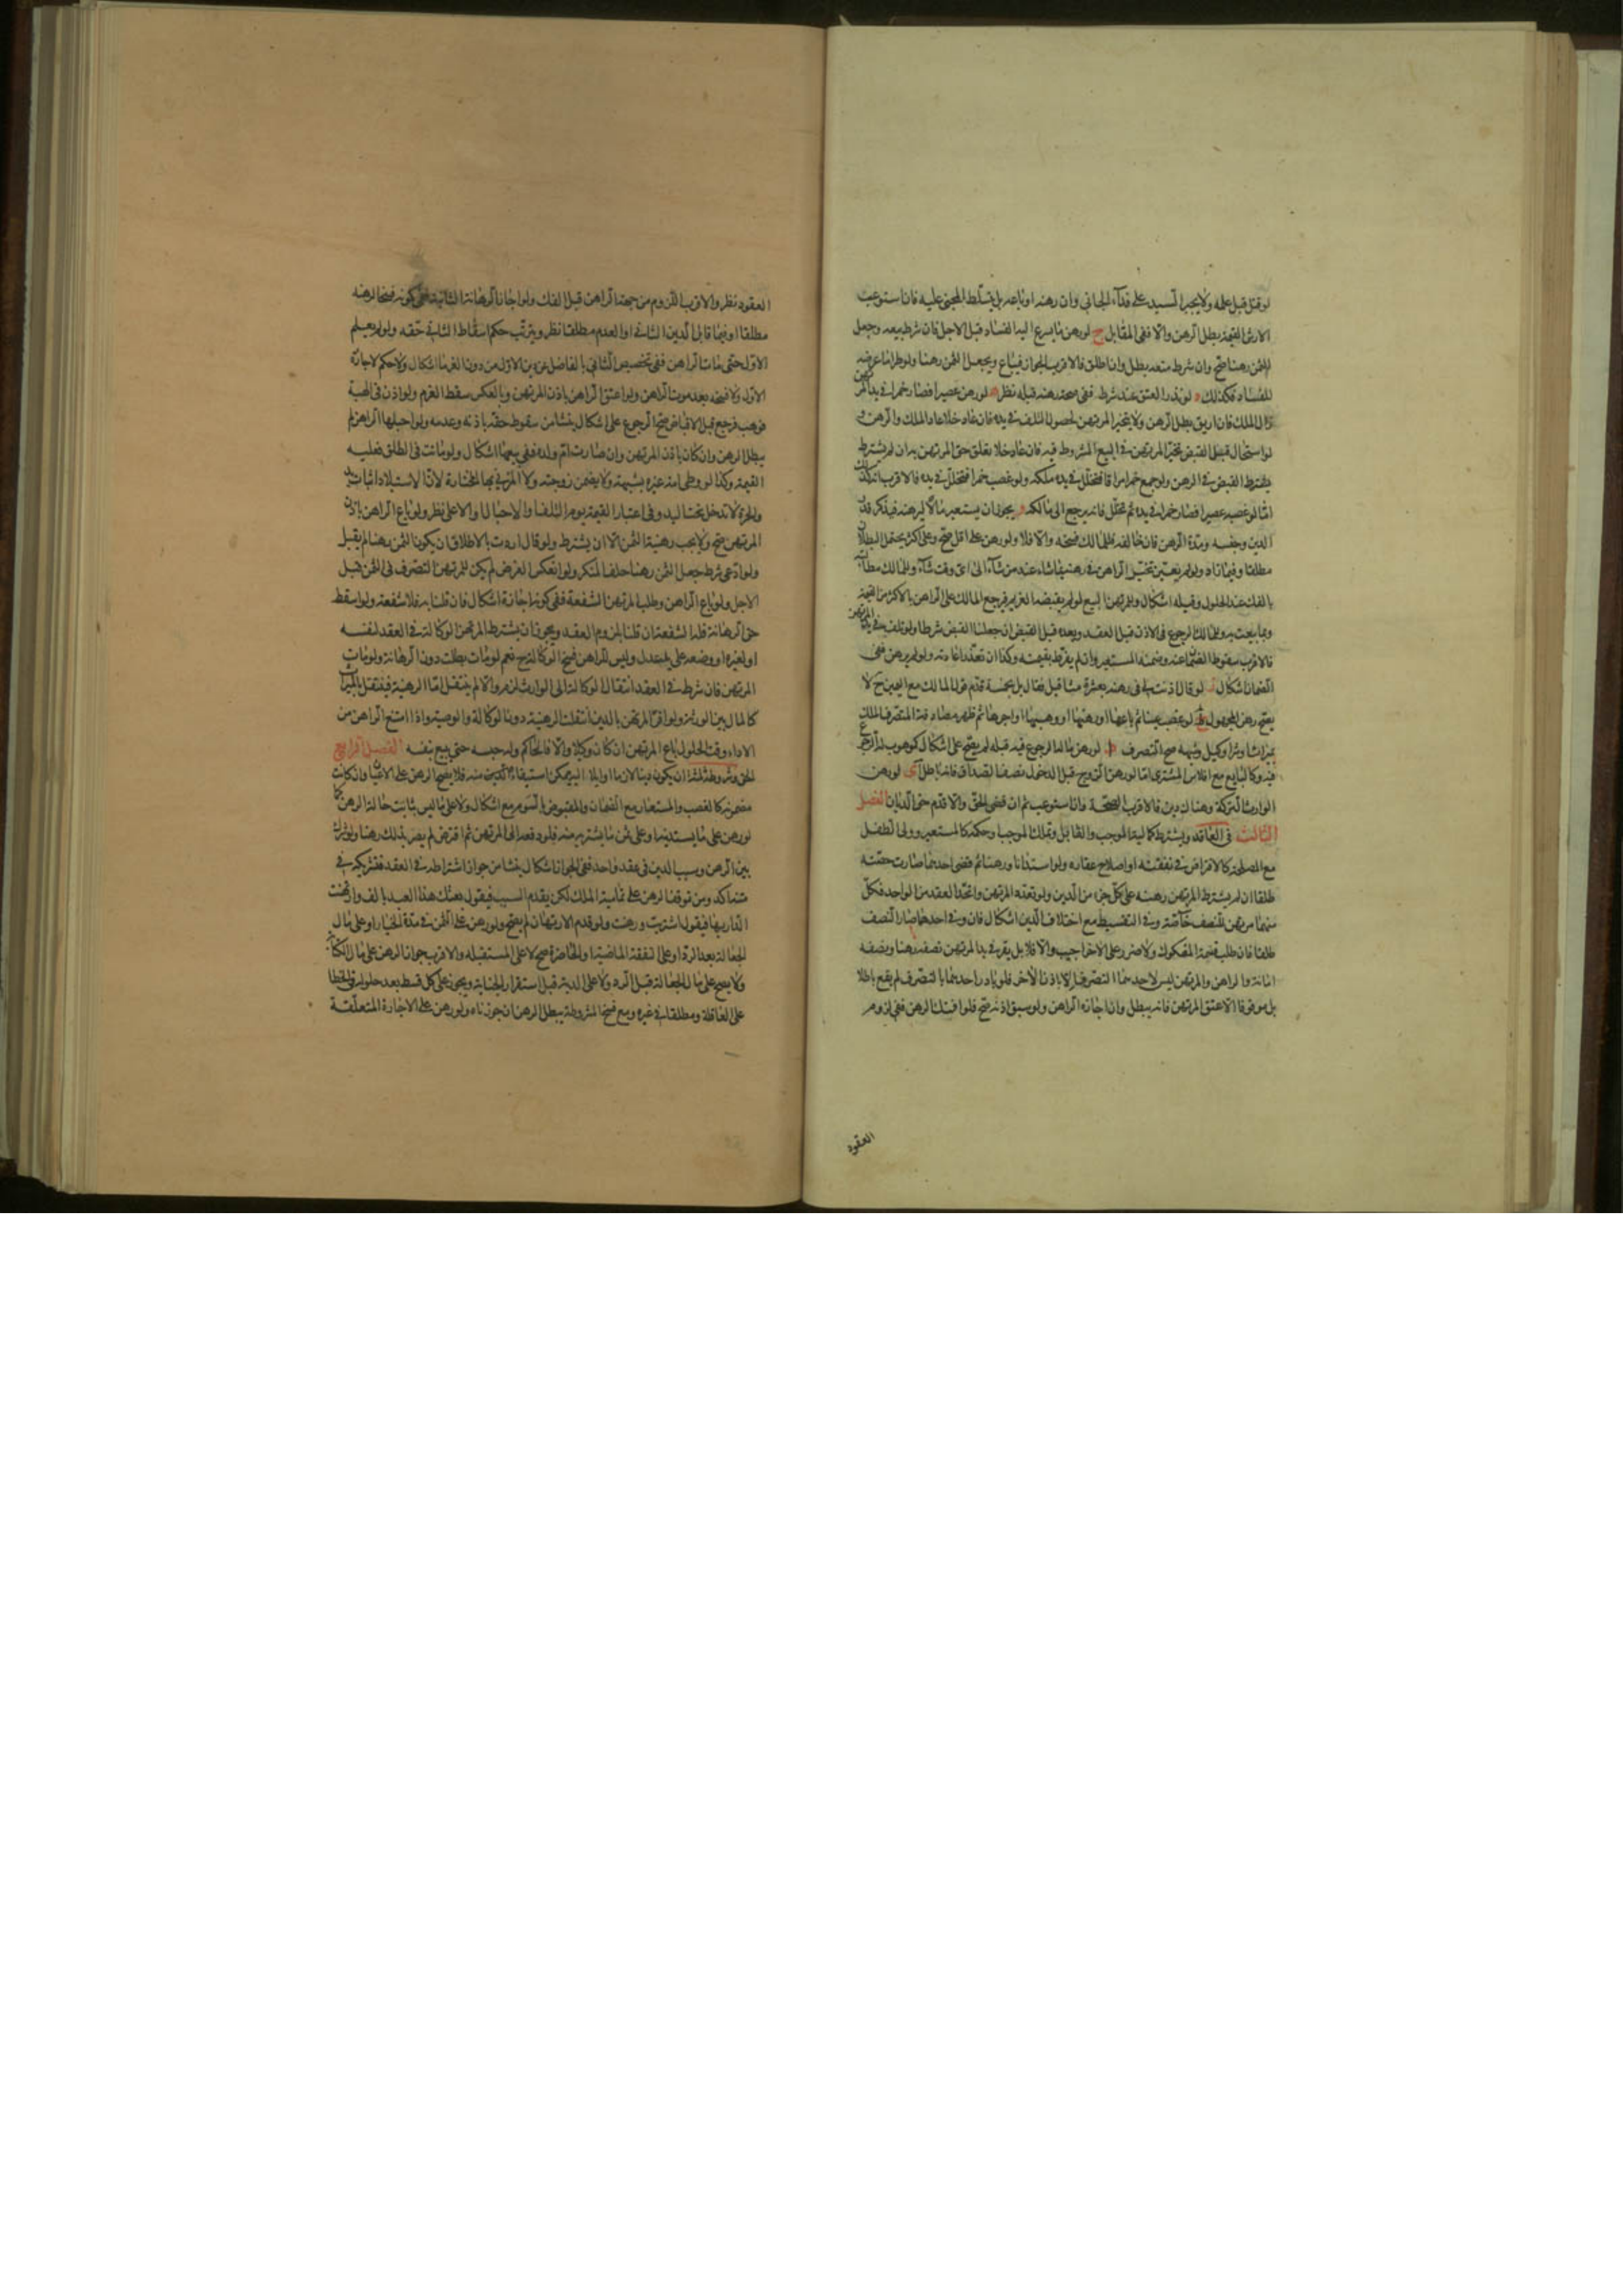 لوقتل قبل علمه ولا يجبر السيد على فداء الجاني وان رهنه او باعه بل يتسلط المجني عليه فان استوعب
الارش القيمة بطل الرهن والا ففي المقابل ح لو رهن ما يسرع اليه الفساد قبل الاجل فان شرط بيعه وجعل
الثمن رهنا صح وان شرط منعه بطل وان اطلق فالاقرب الجواز فيباع ويجعل الثمن رهنا ولو طرا ما عرضه
للفساد فكذلك لو نذر العتق عند شرط ففي صحة رهنه قبله نظر لو رهن عصيرا فصار خمرا في يد المرتهن
زال الملك فان اريق بطل الرهن ولا يتخير المرتهن لحصول التلف في يده فان عاد خلا عاد الملك والرهن و
لو استحال قبل القبض تخير المرتهن في البيع المشروط فيه فان عاد خلا تعلق حق المرتهن به ان لم يشترط
يشترط القبض في الرهن ولو جمع خمرا مراقا فتخلل في يده ملكه ولو غصب خمرا فتخلل في يده فالاقرب انه كذلك
اما لو غصبه عصيرا فصار خمرا في يده ثم تخلل فانه يرجع الى مالكه و يجوز ان يستعير مالا ليرهنه فيذكر قدر
الدين وجنسه ومدة الرهن فان خالفه فللمالك فسخه والا فلا ولو رهن على اقل صح وعلى اكثر يحتمل البطلان
مطلقا وفيما زاد ولو لم يعين تخير الراهن في رهنه بما شاء عند من شاء الى اي وقت شاء وللمالك مطالبته
بالفك عند الحلول وقبله اشكال وللمرتهن البيع لو لم يقبضه الغريم فيرجع المالك على الراهن بالاكثر من القيمة
وما بيعت به وللمالك الرجوع في الاذن قبل العقد وبعده قبل القبض ان جعلنا القبض شرطا ولو تلف في يد المرتهن
فالاقرب سقوط الضمان عنه وضمنه المستعير وان لم يفرط بقيمته وكذا ان تعذر اعادته ولو لم يرهن ففي
الضمان اشكال ز لو قال اذنت لي في رهنه بعشرة مثاقيل فقال بل بخمسة قدم قول المالك مع اليمين ح لا
يصح رهن المجهول ط لو غصب عينا ثم باعها او رهنها او وهبها او اجرها ثم ظهر مصادفة التصرف الملك
بميراث او شرا وكيل وشبهه صح التصرف ط لو رهن ما له الرجوع فيه قبله لم يصح على اشكال كموهوب له الرجوع
فيه وكالبايع مع افلاس المشتري اما لو رهن الزوج قبل الدخول نصف الصداق فانه باطل ى لو رهن
الوارث التركة وهناك دين فالاقرب الصحة فان استوعب ثم ان قضى الحق والا قدم حق الديان الفصل
الثالث في العاقد ويشترط كمالية الموجب والقابل وتملك الموجب او حكمه كالمستعير وولي الطفل
مع المصلحة كالاقراض في نفقته او اصلاح عقاره ولو استدانا ورهنا ثم قضى احدهما صارت حصته
طلقا ان لم يشترط المرتهن رهنه على كل جزء من الدين ولو تعدد المرتهن واتحد العقد من الواحد فكل
منهما مرتهن للنصف خاصة وفي التقسيط مع اختلاف الدين اشكال فان وفى احدهما صار النصف
طلقا فان طلب قسمة المفكوك ولا ضرر على الاخر اجيب والا فلا بل يقر في يد المرتهن نصفه رهنا ونصفه
امانة والراهن والمرتهن ليس لاحدهما التصرف الا باذن الاخر فلو بادر احدهما بالتصرف لم يقع باطلا
بل موقوفا الا عتق المرتهن فانه يبطل وان اجازه الراهن ولو سبق اذنه صح فلو افتك الرهن ففي لزوم
العقود
العقود نظر والاقرب اللزوم من جهة الراهن قبل الفك ولو اجاز الرهانة الثانية ففي كونه فسخا لرهنه
مطلقا او فيما قابل الدين الثاني او العدم مطلقا نظر ويترتب حكم اسقاط الثاني حقه ولو لم يعلم
الاول حتى مات الراهن ففي تخصيص الثاني بالفاضل عن دين الاول من دون الغرما اشكال ولا حكم لاجازة
الاول ولا فسخه بعد موت الراهن ولو اعتق الراهن باذن المرتهن وبالعكس سقط الغرم ولو اذن في الهبة
فوهب فرجع قبل الاقباض صح الرجوع على اشكال ينشا من سقوط حقه باذنه وعدمه ولو احبلها الراهن لم
يبطل الرهن وان كان باذن المرتهن وان صارت ام ولد ففي بيعها اشكال ولو ماتت في الطلق فعليه
القيمة وكذا لو وطى امة غيره بشبهة ولا يضمن زوجته ولا المزني بها المختارة لان الاستيلاد اثبات يد
والحرة لا تدخل تحت اليد وفي اعتبار القيمة يوم التلف او الاحبال او الاعلى نظر ولو باع الراهن باذن
المرتهن صح ولا يجب رهنية الثمن الا ان يشترط ولو قال اردت بالاطلاق ان يكون الثمن رهنا لم يقبل
ولو ادعى شرط جعل الثمن رهنا حلف المنكر ولو انعكس الفرض لم يكن للمرتهن التصرف في الثمن قبل
الاجل ولو باع الراهن وطلب المرتهن الشفعة ففي كونه اجازة اشكال فان قلنا به فلا شفعة ولو اسقط
حق الرهانة فله الشفعة ان قلنا بلزوم العقد ويجوز ان يشترط المرتهن الوكالة في العقد لنفسه
او لغيره او وضعه على يد عدل وليس للراهن فسخ الوكالة ح نعم لو مات بطلت دون الرهانة ولو مات
المرتهن فان شرط في العقد انتقال الوكالة الى الوارث لزم والا لم ينتقل اما الرهنية فينتقل بالميراث
كالمال بين الورثة ولو اقر المرتهن بالدين انتقلت الرهنية دون الوكالة والوصية واذا امتنع الراهن من
الاداء وقت الحلول باع المرتهن ان كان وكيلا والا فالحاكم وله حبسه حتى يبيع بنفسه الفصل الرابع
الحق وشروطه ثلثة ان يكون دينا لازما او ايلا اليه يمكن استيفاء الدين منه فلا يصح الرهن على الاعيان وان كانت
مضمونة كالغصب والمستعار مع الضمان والمقبوض بالسوم مع اشكال ولا على ما ليس بثابت حالة الرهن كما
لو رهن على ما يستدينه او على ثمن ما يشتريه منه فلو دفعه الى المرتهن ثم اقترض لم يصر بذلك رهنا ولو شرك
بين الرهن وسبب الدين في عقد واحد ففي الجواز اشكال ينشا من جواز اشتراطه في العقد فتشريكه في
متنه اكد ومن توقف الرهن على تمامية الملك لكن يقدم السبب فيقول بعتك هذا العبد بالف وارتهنت
الدار بها فيقول اشتريت ورهنت ولو قدم الارتهان لم يصح ولو رهن على الثمن في مدة الخيار او على مال
الجعالة بعد الرد او على النفقة الماضية او الحاضرة صح لا على المستقبلة والاقرب جواز الرهن على مال الكتابة
ولا يصح على مال الجعالة قبل الرد ولا على الدية قبل استقرار الجناية ويجوز على كل قسط بعد حلوله في الخطا
على العاقلة ومطلقا في غيره ومع فسخ المشروطة يبطل الرهن ان جوزناه ولو رهن على الاجارة المتعلقة